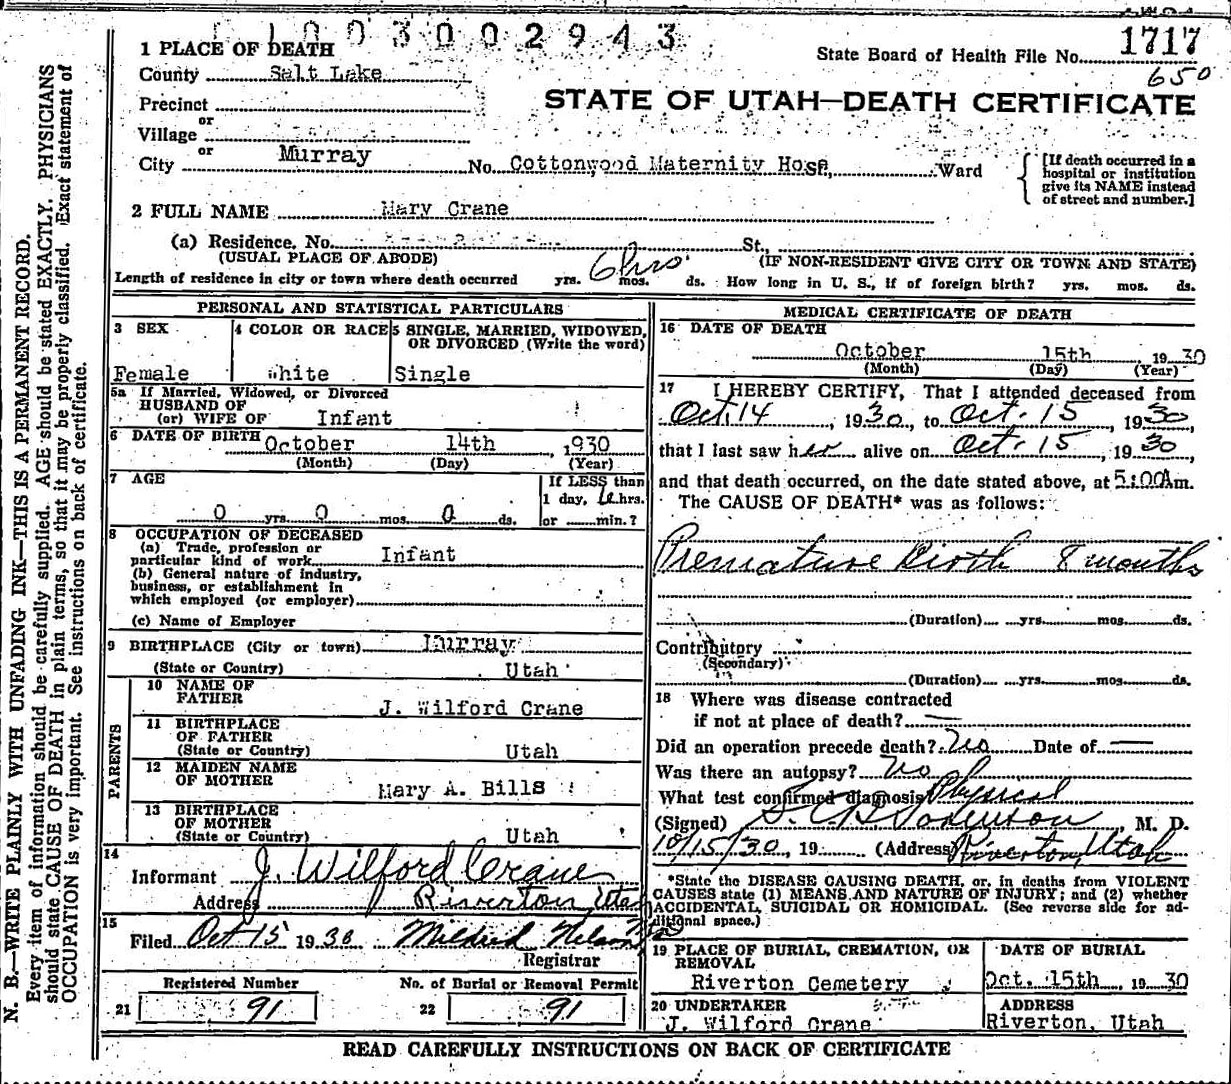 1003002943
1 PLACE OF DEATH
State Board of Health File No. 1717
650
County Salt Lake
STATE OF UTAH—DEATH CERTIFICATE
Precinct
or
Village
or
City Murray No. Cottonwood Maternity Hose St., Ward
[If death occurred in a
hospital or institution
give its NAME instead
of street and number.]
2 FULL NAME Mary Crane
(a) Residence. No. St.,
(USUAL PLACE OF ABODE) (IF NON-RESIDENT GIVE CITY OR TOWN AND STATE)
Length of residence in city or town where death occurred yrs. 6 hrs. mos. ds. How long in U. S., if of foreign birth? yrs. mos. ds.
PERSONAL AND STATISTICAL PARTICULARS
3 SEX
Female
4 COLOR OR RACE
White
5 SINGLE, MARRIED, WIDOWED,
OR DIVORCED (Write the word)
Single
5a If Married, Widowed, or Divorced
HUSBAND OF
(or) WIFE OF Infant
6 DATE OF BIRTH October 14th , 1930
(Month) (Day) (Year)
7 AGE
0 yrs. 0 mos. 0 ds.
If LESS than
1 day, 6 hrs.
or min.?
8 OCCUPATION OF DECEASED
(a) Trade, profession or
particular kind of work Infant
(b) General nature of industry,
business, or establishment in
which employed (or employer)
(c) Name of Employer
9 BIRTHPLACE (City or town) Murray
(State or Country) Utah
PARENTS
10 NAME OF
FATHER J. Wilford Crane
11 BIRTHPLACE
OF FATHER
(State or Country) Utah
12 MAIDEN NAME
OF MOTHER Mary A. Bills
13 BIRTHPLACE
OF MOTHER
(State or Country) Utah
14
Informant J. Wilford Crane
Address Riverton, Utah
15
Filed Oct 15 1930 Mildred Nelson
Registrar
Registered Number
21 91
No. of Burial or Removal Permit
22 91
MEDICAL CERTIFICATE OF DEATH
16 DATE OF DEATH
October 15th 1930
(Month) (Day) (Year)
17 I HEREBY CERTIFY, That I attended deceased from
Oct 14, 1930, to Oct. 15, 1930,
that I last saw her alive on Oct. 15, 1930,
and that death occurred, on the date stated above, at 5:00Am.
The CAUSE OF DEATH* was as follows:
Premature Birth 8 months
(Duration) yrs. mos. ds.
Contributory
(Secondary)
(Duration) yrs. mos. ds.
18 Where was disease contracted
if not at place of death? —
Did an operation precede death? No Date of —
Was there an autopsy? No
What test confirmed diagnosis Physical
(Signed) S. C. Sorenson M. D.
10/15/30, 19 (Address) Riverton, Utah
*State the DISEASE CAUSING DEATH, or, in deaths from VIOLENT
CAUSES state (1) MEANS AND NATURE OF INJURY; and (2) whether
ACCIDENTAL, SUICIDAL OR HOMICIDAL. (See reverse side for ad-
ditional space.)
19 PLACE OF BURIAL, CREMATION, OR
REMOVAL
Riverton Cemetery
DATE OF BURIAL
Oct. 15th, 1930
20 UNDERTAKER
J. Wilford Crane
ADDRESS
Riverton, Utah
READ CAREFULLY INSTRUCTIONS ON BACK OF CERTIFICATE
N. B.—WRITE PLAINLY WITH UNFADING INK—THIS IS A PERMANENT RECORD.
Every item of information should be carefully supplied. AGE should be stated EXACTLY. PHYSICIANS
should state CAUSE OF DEATH in plain terms, so that it may be properly classified. Exact statement of
OCCUPATION is very important. See instructions on back of certificate.